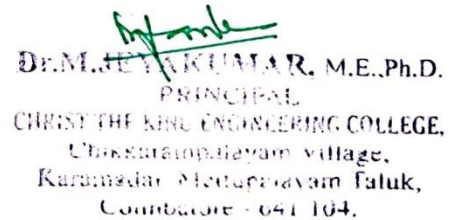 Dr.M.JEYAKUMAR, M.E.,Ph.D.
PRINCIPAL
CHRIST THE KING ENGINEERING COLLEGE,
Chikkarampalayam village,
Karamadai Mettupalayam Taluk,
Coimbatore - 641 104.